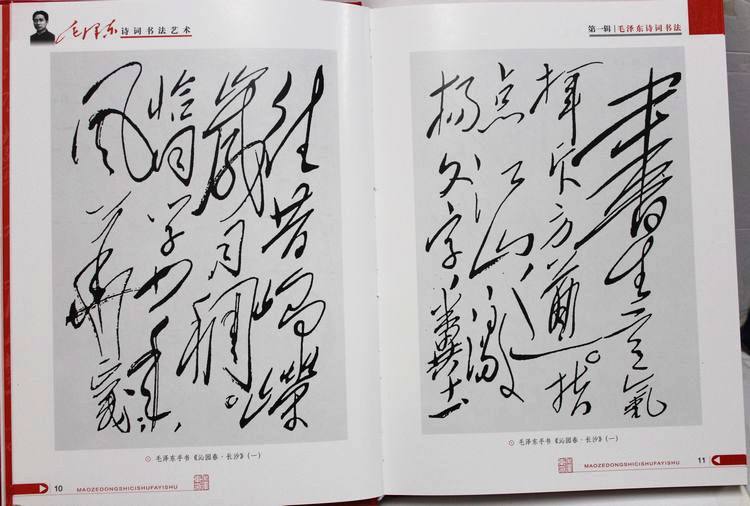 毛泽东诗词书法艺术
往昔崢嶸
歲月稠。
恰同学少年,
风華正茂
毛泽东手书《沁园春·长沙》(一)
10 MAOZEDONGSHICISHUFAYISHU
第一辑|毛泽东诗词书法
書生意氣
揮斥方遒。指
点江山,激
揚文字,糞土
毛泽东手书《沁园春·长沙》(一)
MAOZEDONGSHICISHUFAYISHU 11